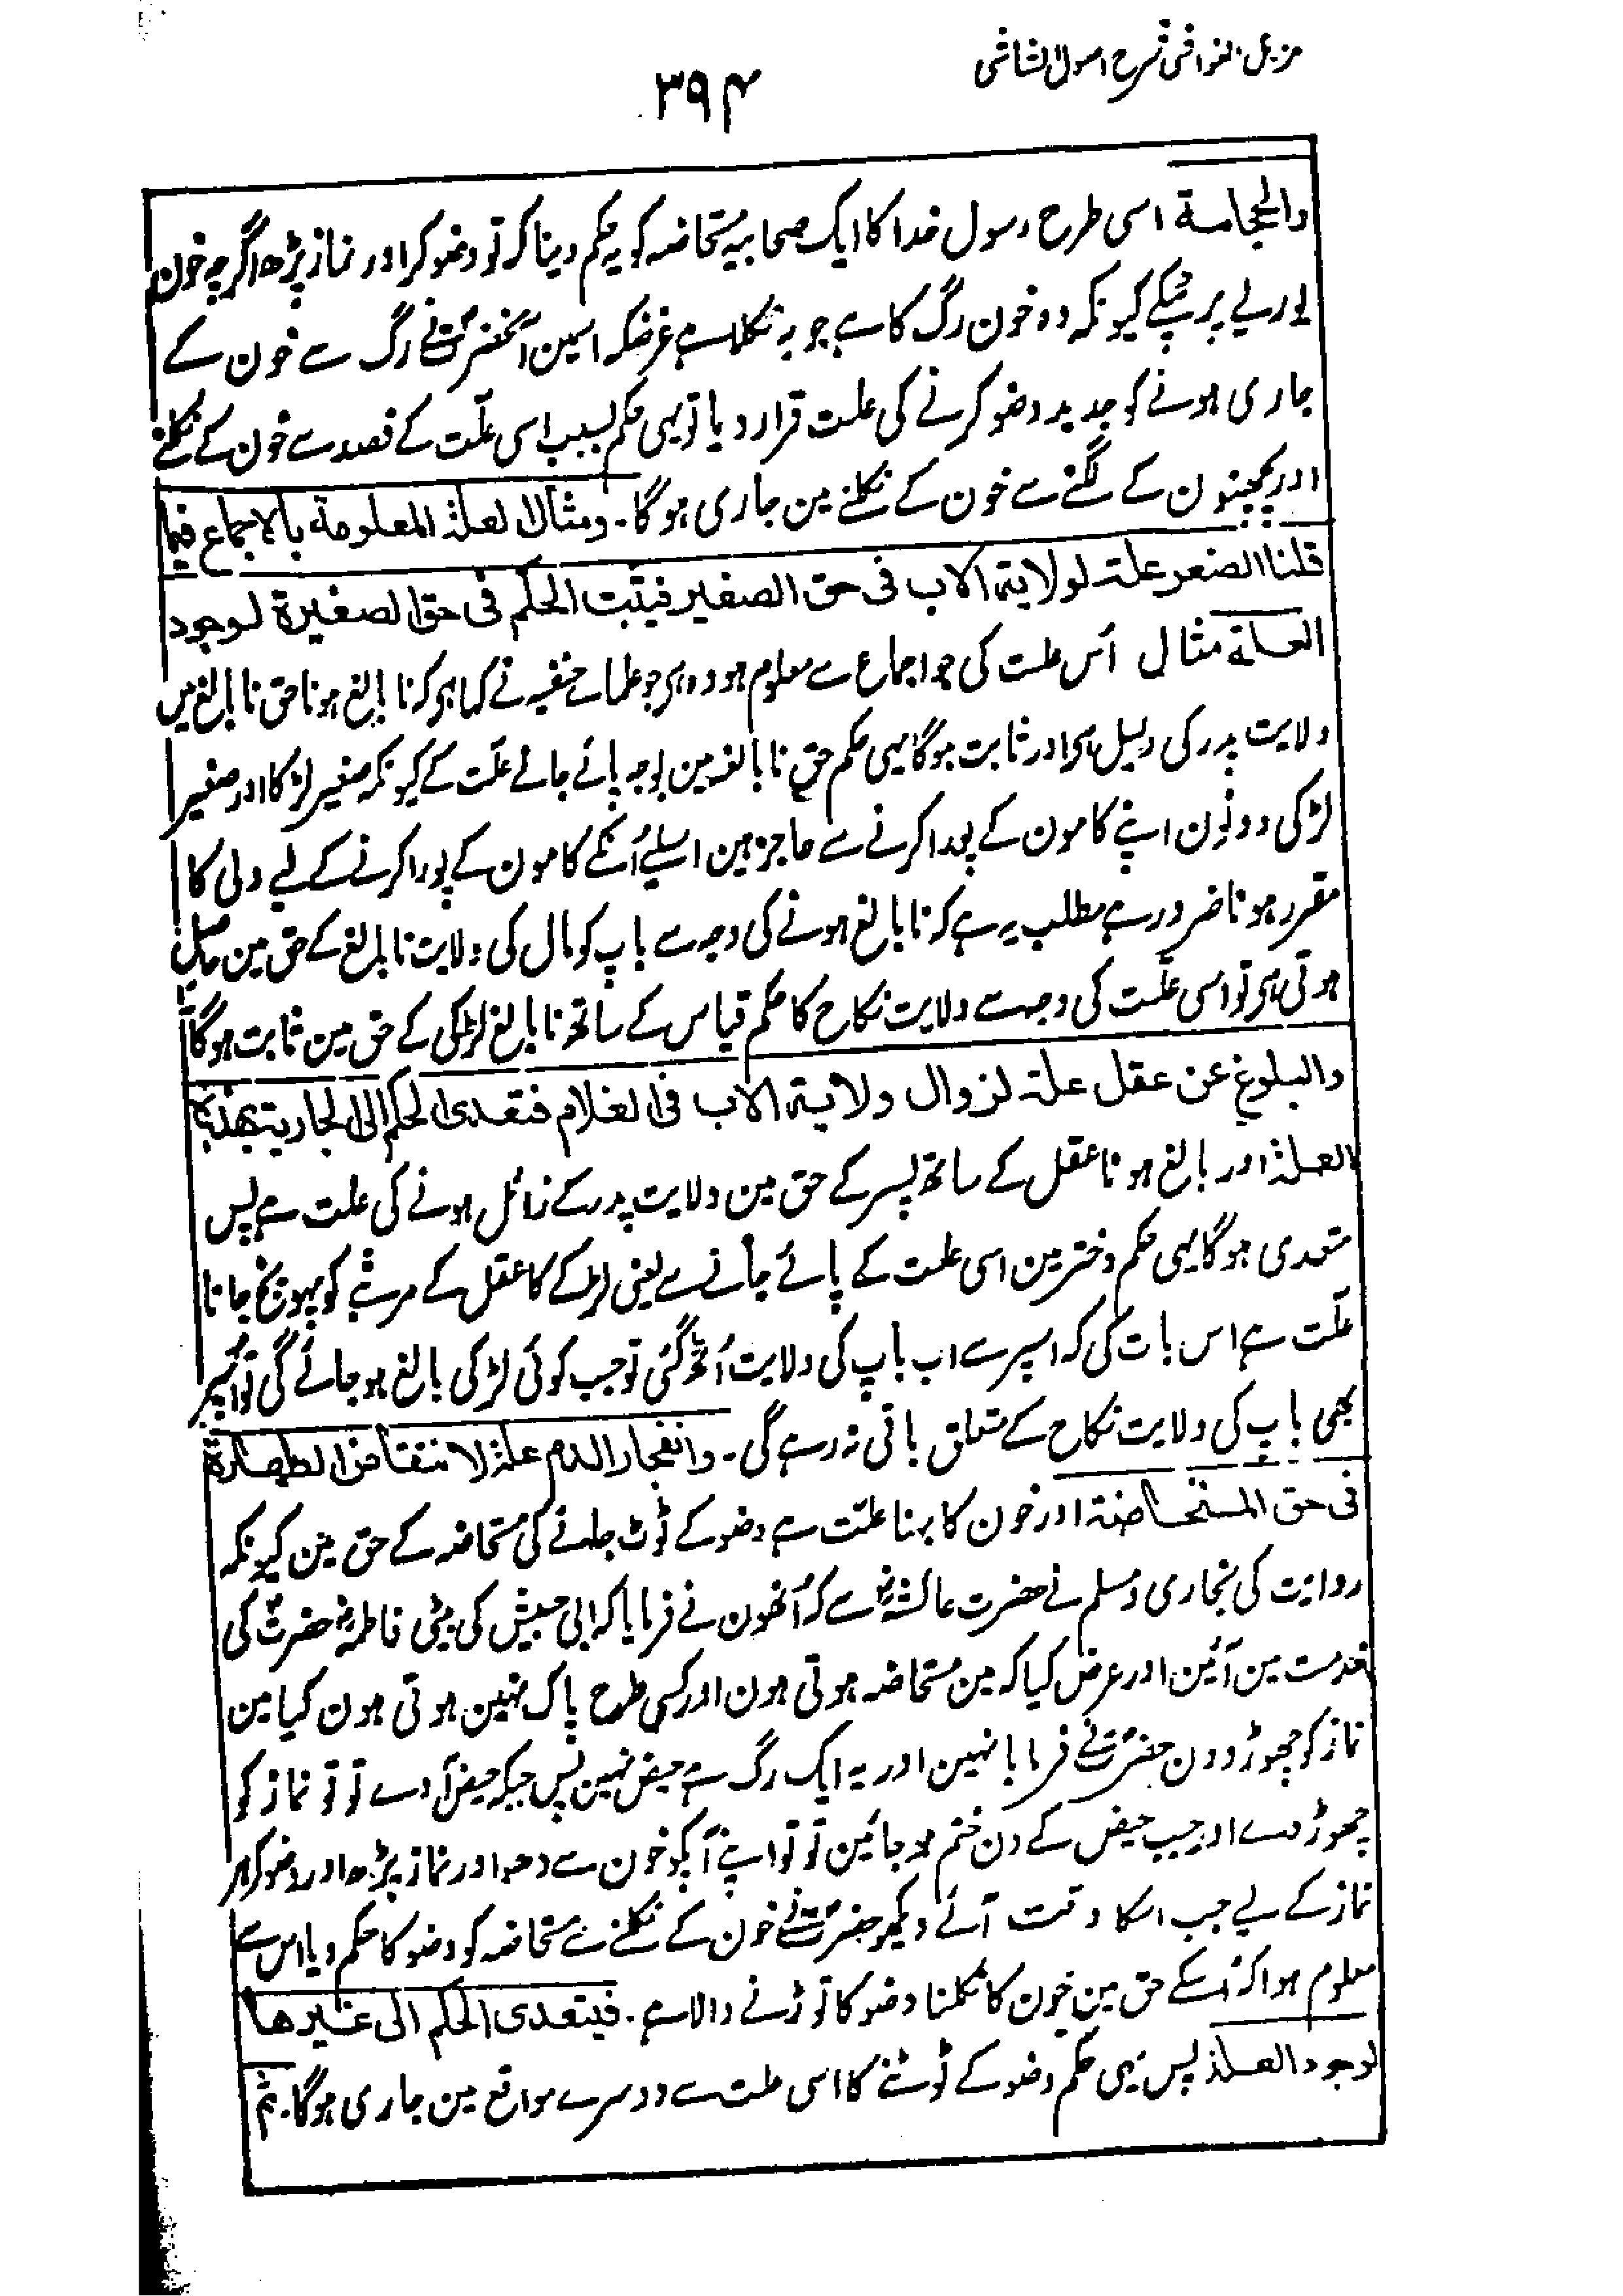 مزیل الغواشی شرح اصول الشاشی
۳۹۴
والحجامة اسی طرح رسول خدا کا ایک صحابیہ مستحاضہ کو یہ حکم دینا کہ تو وضو کر اور نماز پڑھ اگرچہ خون
بوریے پر ٹپکے کیونکہ وہ خون رگ کا ہے جو بہ نکلا ہے غرضکہ اسمین آنحضرتؐ نے رگ سے خون کے
جاری ہونے کو جدید وضو کرنے کی علت قرار دیا تو یہی حکم بسبب اسی علّت کے فصد سے خون کے نکلنے
اور پچھنون کے لگنے سے خون کے نکلنے مین جاری ہوگا۔ ومثال العلة المعلومة بالاجماع فیما
قلنا الصغر علة لولایة الاب فی حق الصغیر فیثبت الحکم فی حق الصغیرة لوجود
العلة مثال اُس علت کی جو اجماع سے معلوم ہو وہ ہی جو علمائے حنفیہ نے کہا ہی کہ نا بالغ ہونا حق نا بالغ میں
ولایت پدر کی دلیل ہی اور ثابت ہوگا یہی حکم حق نا بالغہ مین بوجہ پائے جانے علّت کے کیونکہ صغیر لڑکا اور صغیر
لڑکی دونون اپنے کامون کے پورا کرنے سے عاجز ہین اسلیے اُنکے کامون کے پورا کرنے کے لیے ولی کا
مقرر ہونا ضرور ہے مطلب یہ ہے کہ نا بالغ ہونے کی وجہ سے باپ کو مال کی ولایت نا بالغ کے حق مین حاصل
ہوتی ہی تو اسی علّت کی وجہ سے ولایت نکاح کا حکم قیاس کے ساتھ نا بالغ لڑکی کے حق مین ثابت ہوگا
والبلوغ عن عقل علة لزوال ولایة الاب فی الغلام فتعدی الحکم الی الجاریة بهذه
العلة اور بالغ ہونا عقل کے ساتھ پسر کے حق مین ولایت پدر کے زائل ہونے کی علت ہے پس
متعدی ہوگا یہی حکم دختر مین اسی علت کے پائے جانے سے یعنی لڑکے کا عقل کے مرتبے کو پہونچ جانا
علّت ہے اس بات کی کہ اسپر سے اب باپ کی ولایت اُٹھ گئی تو جب کوئی لڑکی بالغ ہو جائے گی تو اُسپر
بھی باپ کی ولایت نکاح کے متعلق باقی نہ رہے گی۔ وانفجار الدم علة لانتقاض الطهارة
فی حق المستحاضة اور خون کا بہنا علّت ہے وضو کے ٹوٹ جانے کی مستحاضہ کے حق مین کیونکہ
روایت کی بخاری و مسلم نے حضرت عائشہؓ سے کہ اُنھون نے فرمایا کہ ابی حبیش کی بیٹی فاطمہؓ حضرتؐ کی
خدمت مین آئین اور عرض کیا کہ مین مستحاضہ ہوتی ہون اور کسی طرح پاک نہین ہوتی ہون کیا مین
نماز کو چھوڑ دون حضرتؐ نے فرمایا نہین اور یہ ایک رگ ہے حیض نہین پس جبکہ حیض آوے تو تو نماز کو
چھوڑ دے اور جب حیض کے دن ختم ہو جائین تو تو اپنے آپکو خون سے دھو اور نماز پڑھ اور وضو کر ہر
نماز کے لیے جب اسکا وقت آئے دیکھو حضرتؐ نے خون کے نکلنے سے مستحاضہ کو وضو کا حکم دیا اس سے
معلوم ہوا کہ اُسکے حق مین خون کا نکلنا وضو کا توڑنے والا ہے۔ فیتعدی الحکم الی غیرها
لوجود العلة پس یہی حکم وضو کے ٹوٹنے کا اسی علت سے دوسرے مواقع مین جاری ہوگا۔ ثم